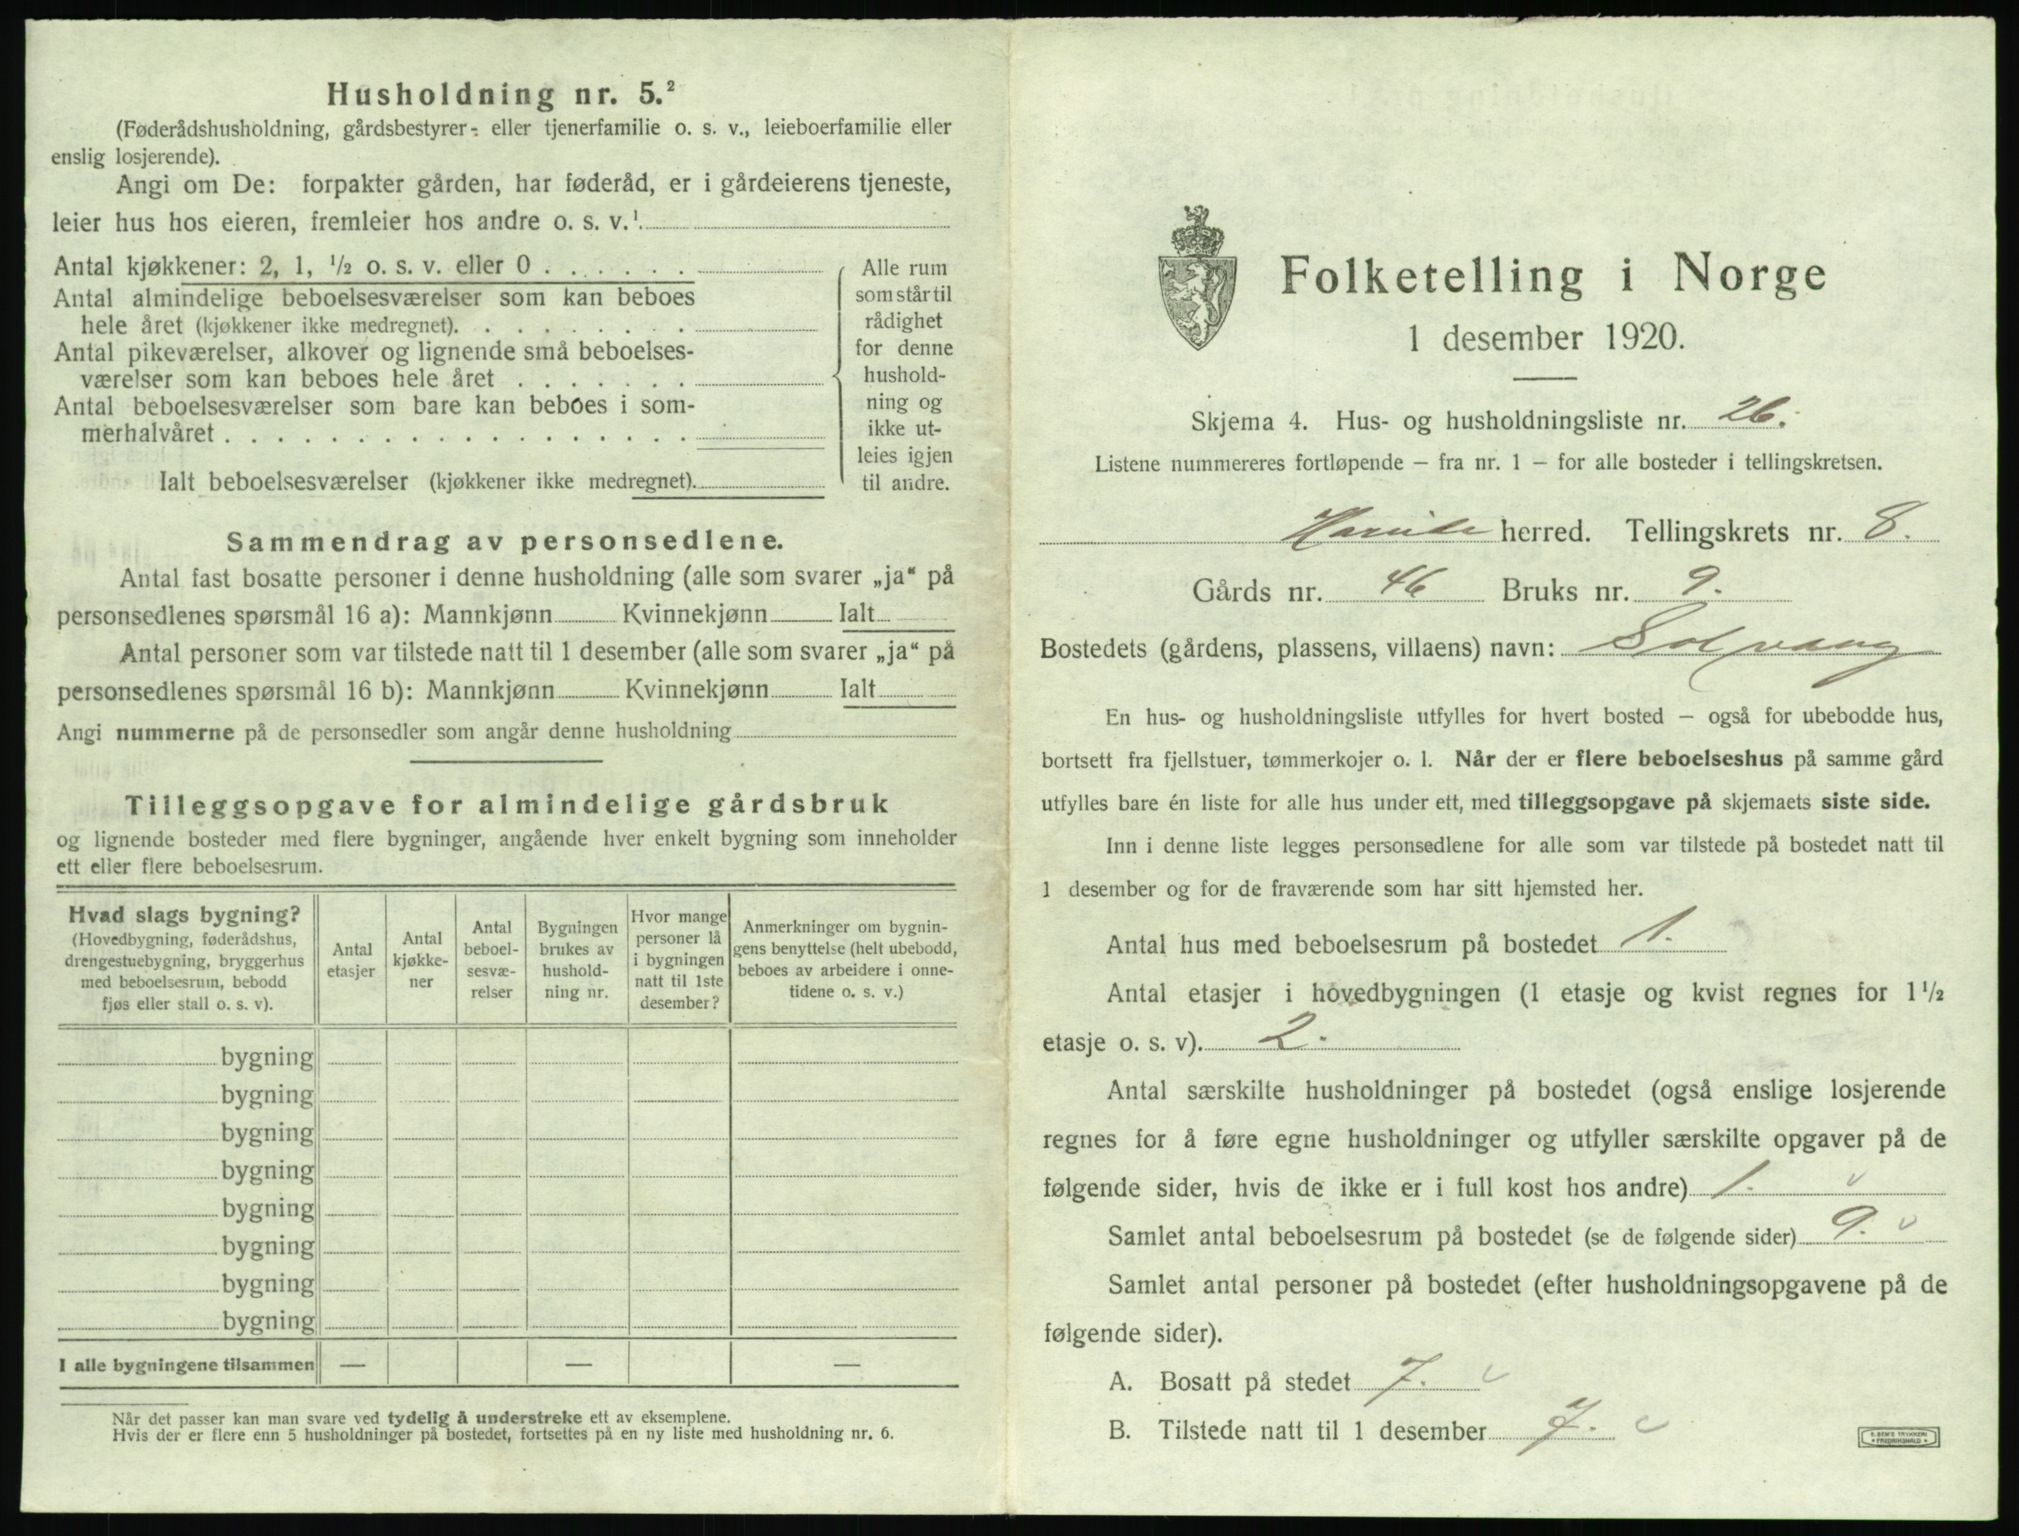 Husholdning nr. 5.²
(Føderådshusholdning, gårdsbestyrer- eller tjenerfamilie o. s. v., leieboerfamilie eller
enslig losjerende).
Angi om De: forpakter gården, har føderåd, er i gårdeierens tjeneste,
leier hus hos eieren, fremleier hos andre o. s. v.¹
Antal kjøkkener: 2, 1, ½ o. s. v. eller 0 . . . . . .
Antal almindelige beboelsesværelser som kan beboes
hele året (kjøkkener ikke medregnet). . . . . . . . .
Antal pikeværelser, alkover og lignende små beboelses-
værelser som kan beboes hele året . . . . . . .
Antal beboelsesværelser som bare kan beboes i som-
merhalvåret . . . . . . . . . . . . . . . . .
Ialt beboelsesværelser (kjøkkener ikke medregnet).
Alle rum
som står til
rådighet
for denne
hushold-
ning og
ikke ut-
leies igjen
til andre.
Sammendrag av personsedlene.
Antal fast bosatte personer i denne husholdning (alle som svarer „ja“ på
personsedlenes spørsmål 16 a): Mannkjønn Kvinnekjønn Ialt
Antal personer som var tilstede natt til 1 desember (alle som svarer „ja“ på
personsedlenes spørsmål 16 b): Mannkjønn Kvinnekjønn Ialt
Angi nummerne på de personsedler som angår denne husholdning
Tilleggsopgave for almindelige gårdsbruk
og lignende bosteder med flere bygninger, angående hver enkelt bygning som inneholder
ett eller flere beboelsesrum.
Hvad slags bygning?
(Hovedbygning, føderådshus,
drengestuebygning, bryggerhus
med beboelsesrum, bebodd
fjøs eller stall o. s. v).
Antal
etasjer
Antal
kjøkke-
ner
Antal
beboel-
sesvæ-
relser
Bygningen
brukes av
hushold-
ning nr.
Hvor mange
personer lå
i bygningen
natt til 1ste
desember?
Anmerkninger om bygnin-
gens benyttelse (helt ubebodd,
beboes av arbeidere i onne-
tidene o. s. v.)
bygning
bygning
bygning
bygning
bygning
bygning
bygning
bygning
I alle bygningene tilsammen — — —
Når det passer kan man svare ved tydelig å understreke ett av eksemplene.
Hvis der er flere enn 5 husholdninger på bostedet, fortsettes på en ny liste med husholdning nr. 6.
Folketelling i Norge
1 desember 1920.
Skjema 4. Hus- og husholdningsliste nr. 26.
Listene nummereres fortløpende – fra nr. 1 – for alle bosteder i tellingskretsen.
Hareide herred. Tellingskrets nr. 8.
Gårds nr. 46 Bruks nr. 9.
Bostedets (gårdens, plassens, villaens) navn: Solvang
En hus- og husholdningsliste utfylles for hvert bosted – også for ubebodde hus,
bortsett fra fjellstuer, tømmerkojer o. l. Når der er flere beboelseshus på samme gård
utfylles bare én liste for alle hus under ett, med tilleggsopgave på skjemaets siste side.
Inn i denne liste legges personsedlene for alle som var tilstede på bostedet natt til
1 desember og for de fraværende som har sitt hjemsted her.
Antal hus med beboelsesrum på bostedet 1.
Antal etasjer i hovedbygningen (1 etasje og kvist regnes for 1½
etasje o. s. v). 2.
Antal særskilte husholdninger på bostedet (også enslige losjerende
regnes for å føre egne husholdninger og utfyller særskilte opgaver på de
følgende sider, hvis de ikke er i full kost hos andre) 1.
Samlet antal beboelsesrum på bostedet (se de følgende sider) 9.
Samlet antal personer på bostedet (efter husholdningsopgavene på de
følgende sider).
A. Bosatt på stedet 7.
B. Tilstede natt til 1 desember 7.